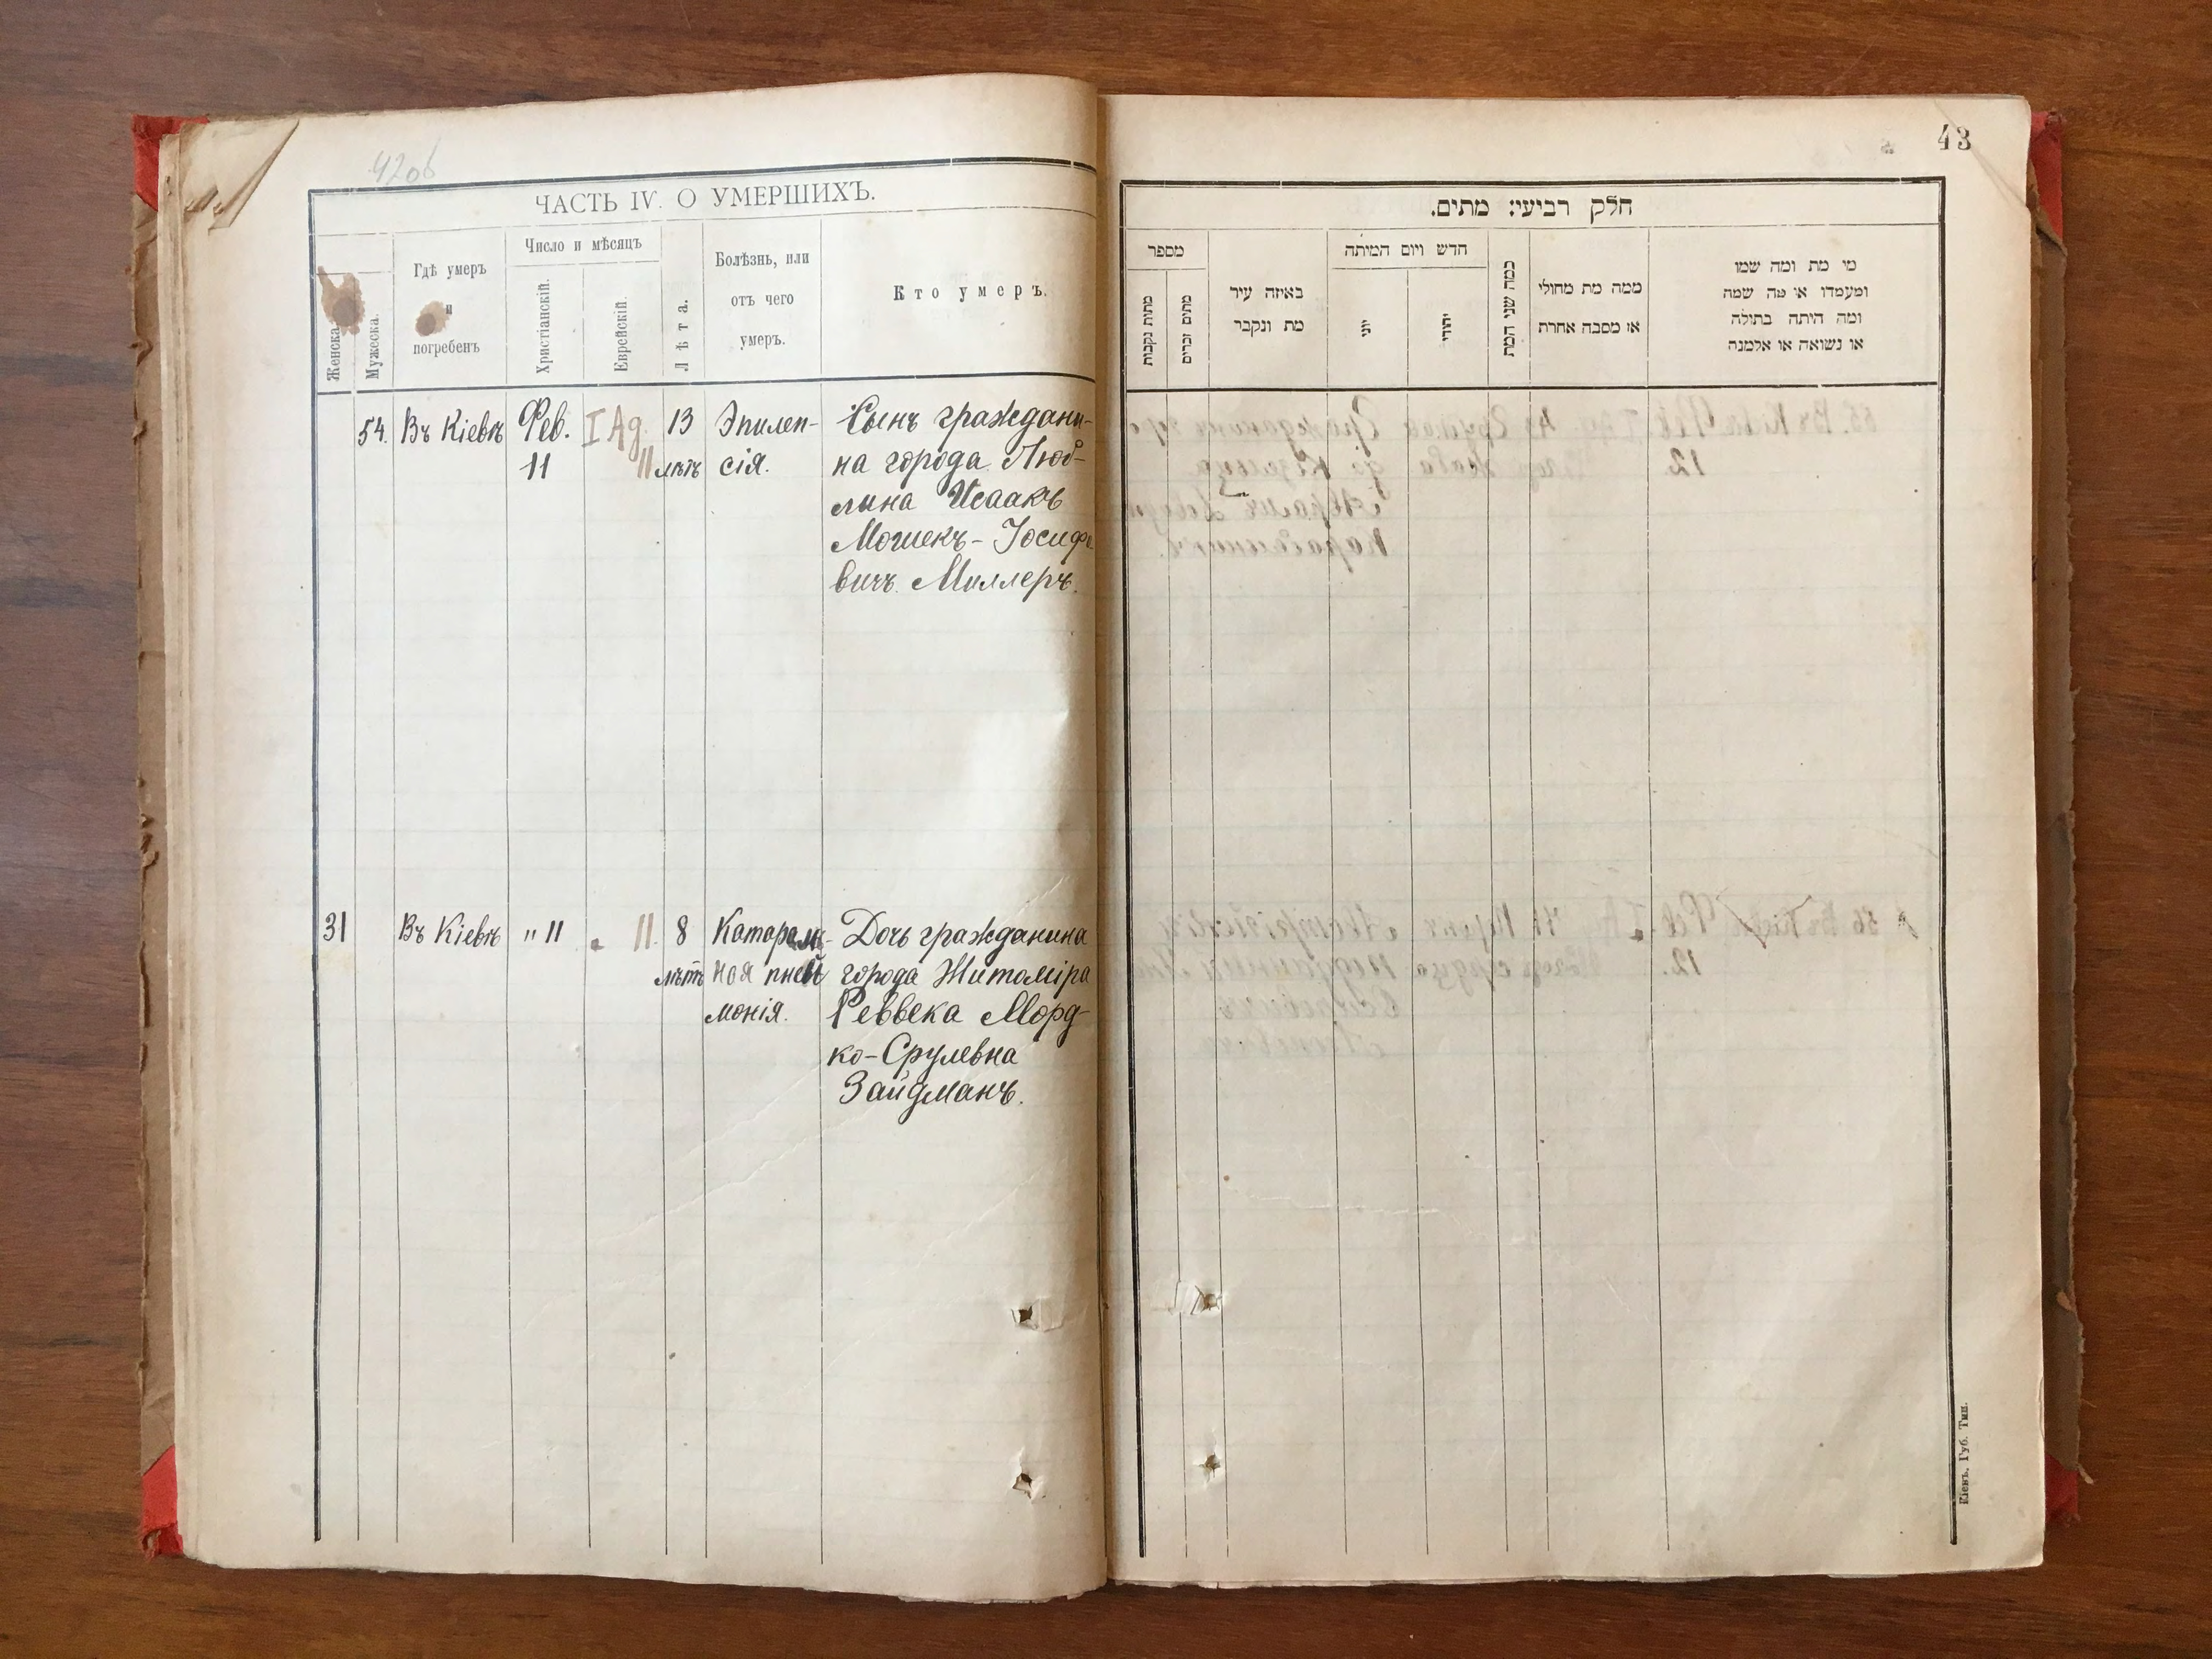 42об
ЧАСТЬ IV. О УМЕРШИХЪ.
Женска
Мужеска.
Гдѣ умеръ
и
погребенъ
Число и мѣсяцъ
Христіанскій.
Еврейскій.
Лѣта.
Болѣзнь, или
отъ чего
умеръ.
Кто умеръ.
54. Въ Кіевѣ Фев. I Ад. 13 Эпилеп- Сынъ граждани-
11 11 лѣтъ сія. на города Люб-
лина Исаакъ
Мошекъ-Іосифо
вичъ Миллеръ.
31 Въ Кіевѣ " 11 " 11. 8 Катараль- Дочь гражданина
лѣтъ ная пнев города Житоміра
монія. Реввека Морд-
ко-Срулевна
Зайдманъ.
43
חלק רביעי: מתים.
מספר
מתות נקבות
מתים זכרים
באיזה עיר
מת ונקבר
חדש ויום המיתה
יוני
יהודי
כמה שני המת
ממה מת מחולי
או מסבה אחרת
מי מת ומה שמו
ומעמדו או מה שמה
ומה היתה בתולה
או נשואה או אלמנה
Кіевъ. Губ. Тип.